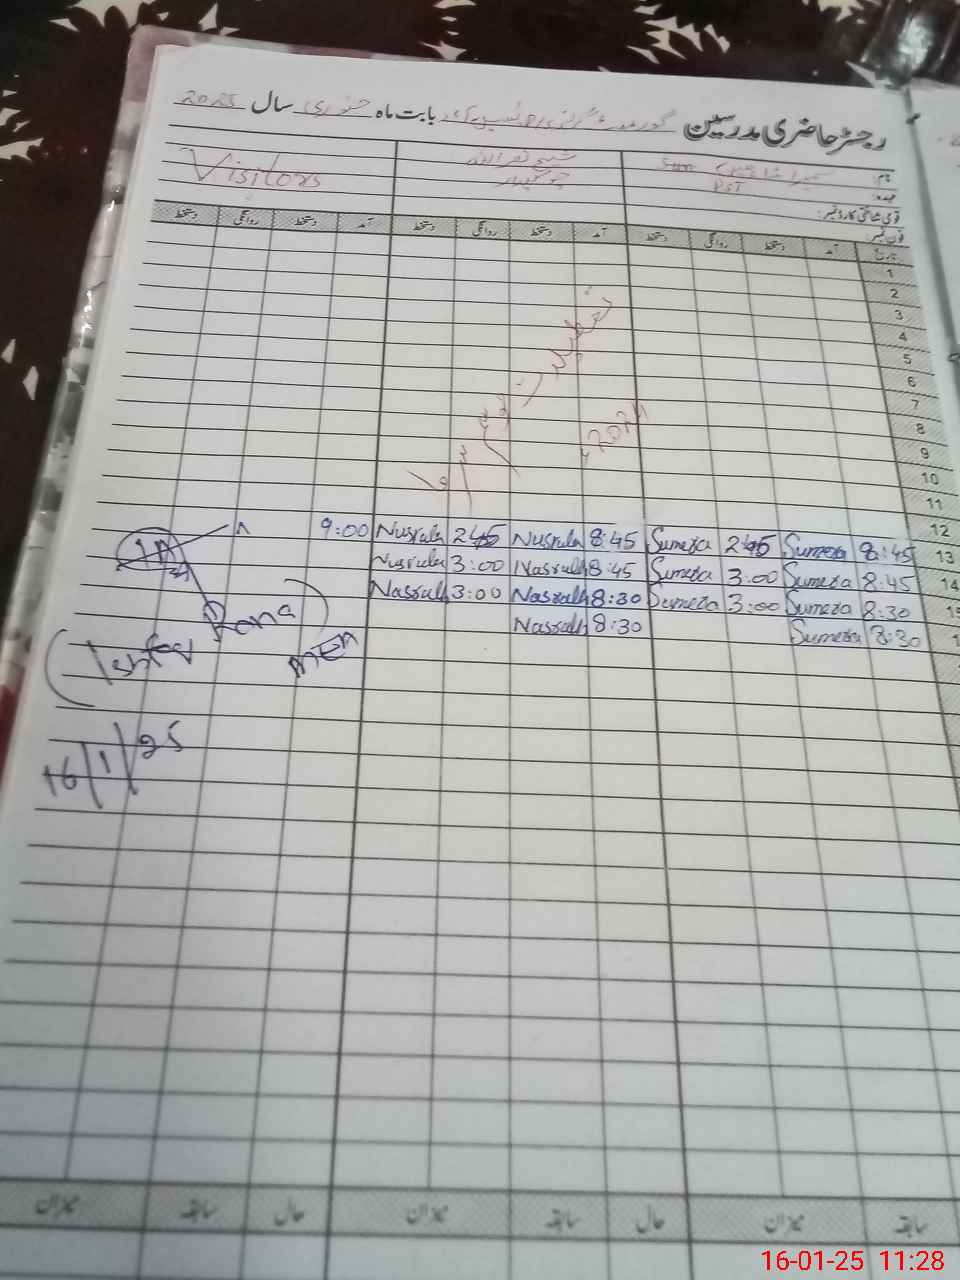 رجسٹر حاضری مدرسین گورنمنٹ گرلز بابت ماہ جنوری سال 2025
نام: سمیرا شاہین Sun
عہدہ: PST
قومی شناختی کارڈ نمبر:
فون نمبر:
شیخ نصراللہ
چوکیدار
Visitors
تاریخ آمد دستخط روانگی دستخط آمد دستخط روانگی دستخط آمد دستخط روانگی دستخط
1
2
3
4
5
6
7
8
9
10
11
12
تعطیلات موسم سرما
2024ء
13 8:45 Sumera 2:45 Sumera 8:45 Nusrulh 2:45 Nusrulh 9:00
14 8:45 Sumera 3:00 Sumera 8:45 Nasrulh 3:00 Nusrulh
15 8:30 Sumera 3:00 Sumera 8:30 Nasralh 3:00 Nasralh
8:30 Sumera 8:30 Nasralh
Rana
MEA
16/1/25
سابقہ میزان حال سابقہ میزان حال سابقہ میزان
16-01-25 11:28